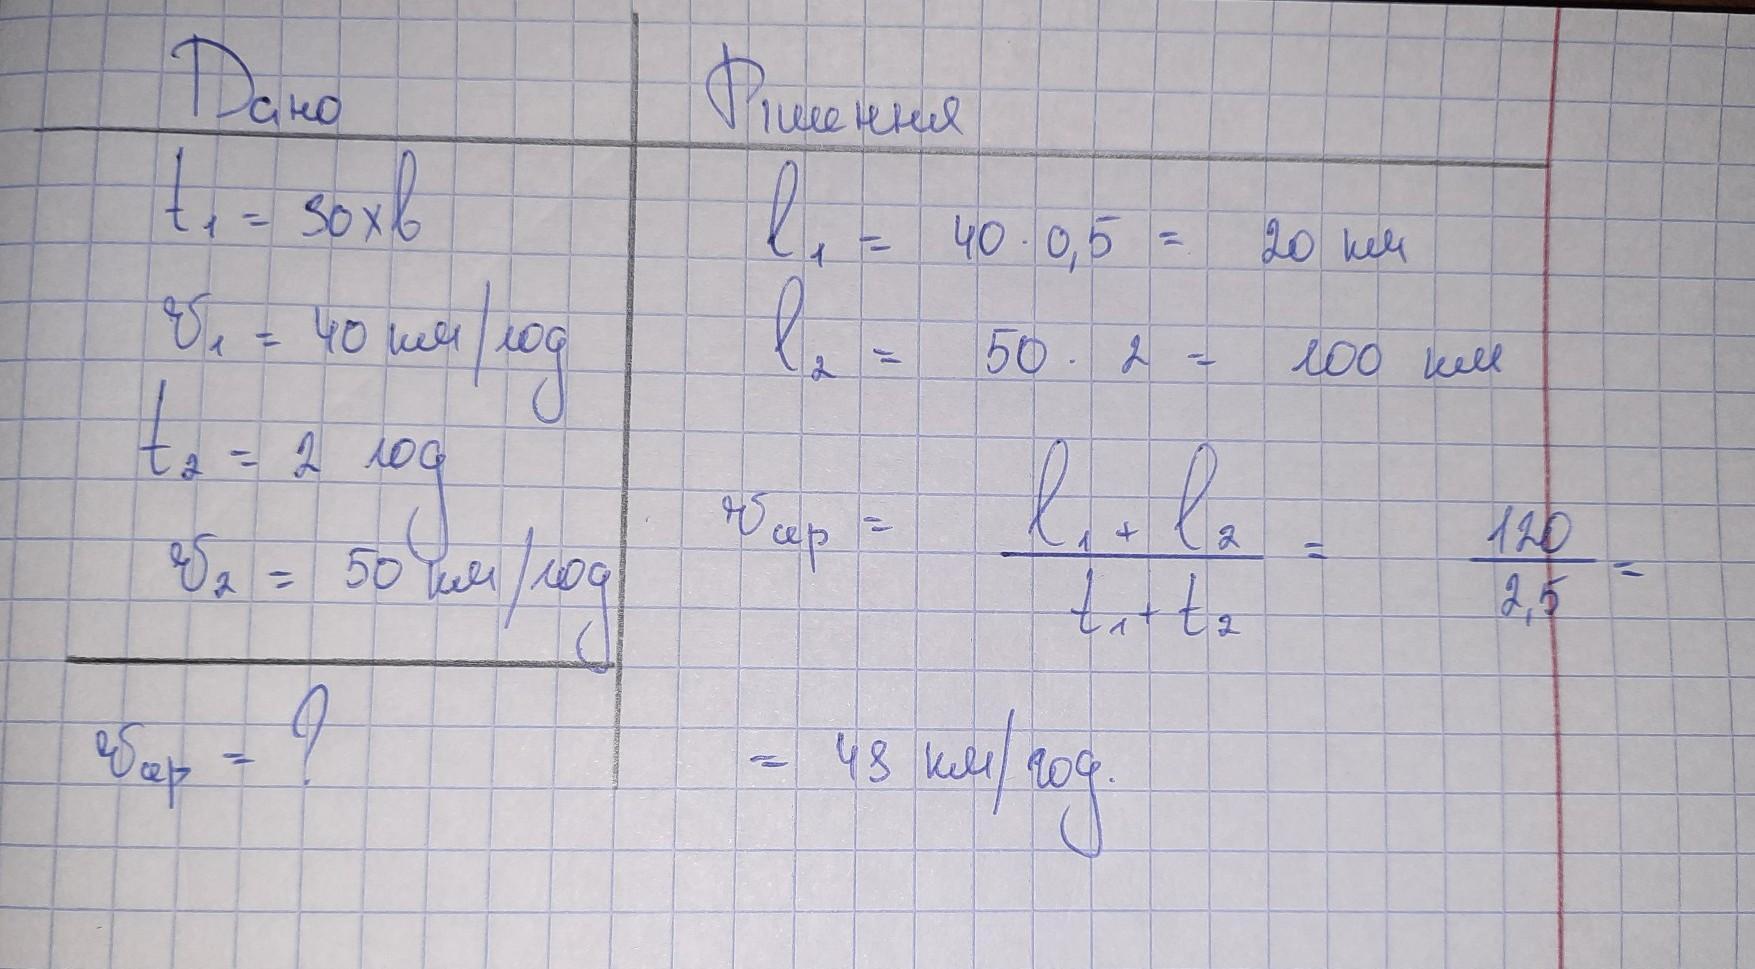 Дано
t₁ = 30хв
v₁ = 40 км/год
t₂ = 2 год
v₂ = 50 км/год
vср = ?
Рішення
l₁ = 40 · 0,5 = 20 км
l₂ = 50 · 2 = 100 км
vср = (l₁ + l₂)/(t₁ + t₂) = 120/2,5 =
= 48 км/год.